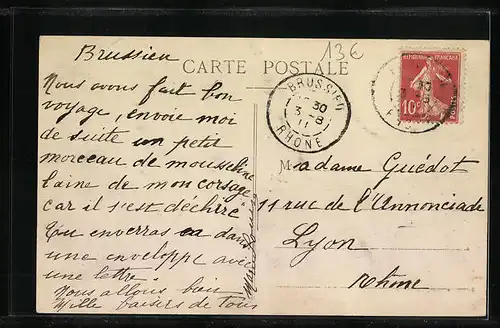 Brussieu
13€
CARTE POSTALE
Nous avons fait bon
voyage, envoie moi
de suite un petit
morceau de mousseline
laine de mon corsage
car il s'est déchiré
Tu enverras ça dans
une enveloppe avec
une lettre
Nous allons bien
Mille baisers de tous
BRUSSIEU
30
3 - 8
11
RHONE
REPUBLIQUE FRANÇAISE
10c
POSTES
Madame Guédot
11 rue de l'Annonciade
Lyon
Rhône